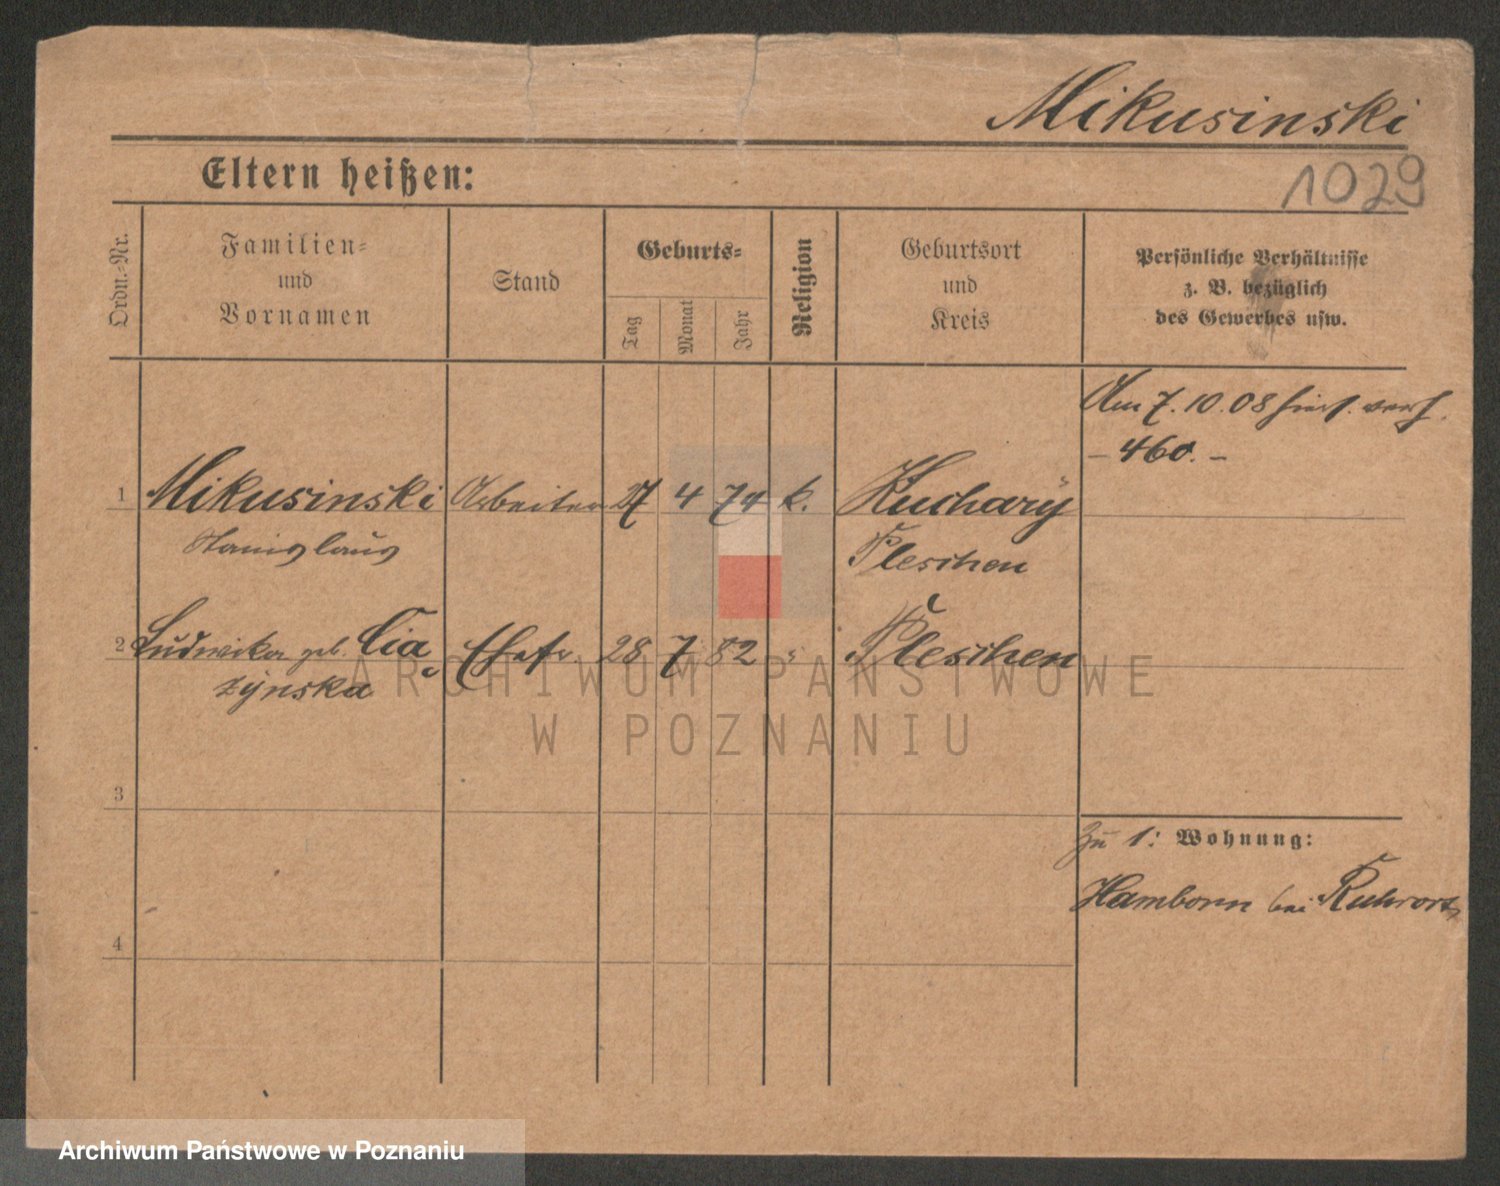 Mikusinski
1029
Eltern heißen:
Ordn.=Nr.
Familien=
und
Vornamen
Stand
Geburts=
Tag
Monat
Jahr
Religion
Geburtsort
und
Kreis
Persönliche Verhältnisse
z. B. bezüglich
des Gewerbes usw.
Am 7. 10. 08
– 460. –
1 Mikusinski Arbeiter 27 4 74 k. Kuchary
Stanislaus Pleschen
2 Ludwika geb. Cia Ehefr. 28 7 82 " Pleschen
zynska
3
zu 1: Wohnung:
Hamborn bei Ruhrort
4
ARCHIWUM PAŃSTWOWE
W POZNANIU
Archiwum Państwowe w Poznaniu